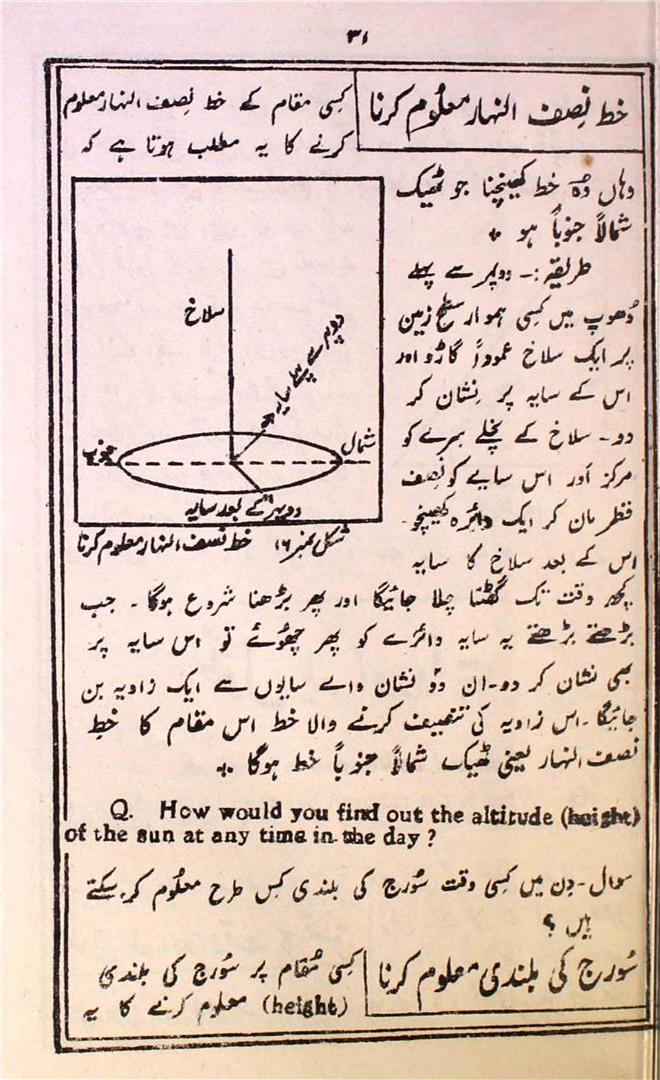 ۳۱
خط نِصف النہار معلُوم کرنا
کِسی مقام کے خط نِصف النہار معلوم
کرنے کا یہ مطلب ہوتا ہے کہ
وہاں وُہ خط کھینچنا جو ٹھیک
شمالاً جنوباً ہو ٭
طریقہ :- دوپہر سے پہلے
دُھوپ میں کِسی ہموار سطح زمین
پر ایک سلاخ عموداً گاڑو اور
اس کے سایہ پر نِشان کر
دو۔ سلاخ کے نچلے سِرے کو
مرکز اور اس سایے کو نِصف
قطر مان کر ایک دائرہ کھینچو۔
اس کے بعد سلاخ کا سایہ
سلاخ
دوپہر سے پہلے سایہ
شمال
جنوب
دوپہر کے بعد سایہ
شکل نمبر ۱۶ خط نصف النہار معلوم کرنا
کچھ وقت تک گھٹتا چلا جائیگا اور پھر بڑھنا شروع ہوگا۔ جب
بڑھتے بڑھتے یہ سایہ دائرے کو پھر چھُوئے تو اس سایہ پر
بھی نشان کر دو۔ ان دو نشان والے سایوں سے ایک زاویہ بن
جائیگا۔ اس زاویہ کی تنصیف کرنے والا خط اس مقام کا خطِ
نصف النہار یعنی ٹھیک شمالاً جنوباً خط ہوگا ٭
Q. How would you find out the altitude (height)
of the sun at any time in the day ?
سوال۔ دِن میں کِسی وقت سُورج کی بلندی کِس طرح معلُوم کر سکتے
ہیں ؟
سُورج کی بلندی معلوم کرنا
کِسی مُقام پر سُورج کی بلندی
(height) معلوم کرنے کا یہ